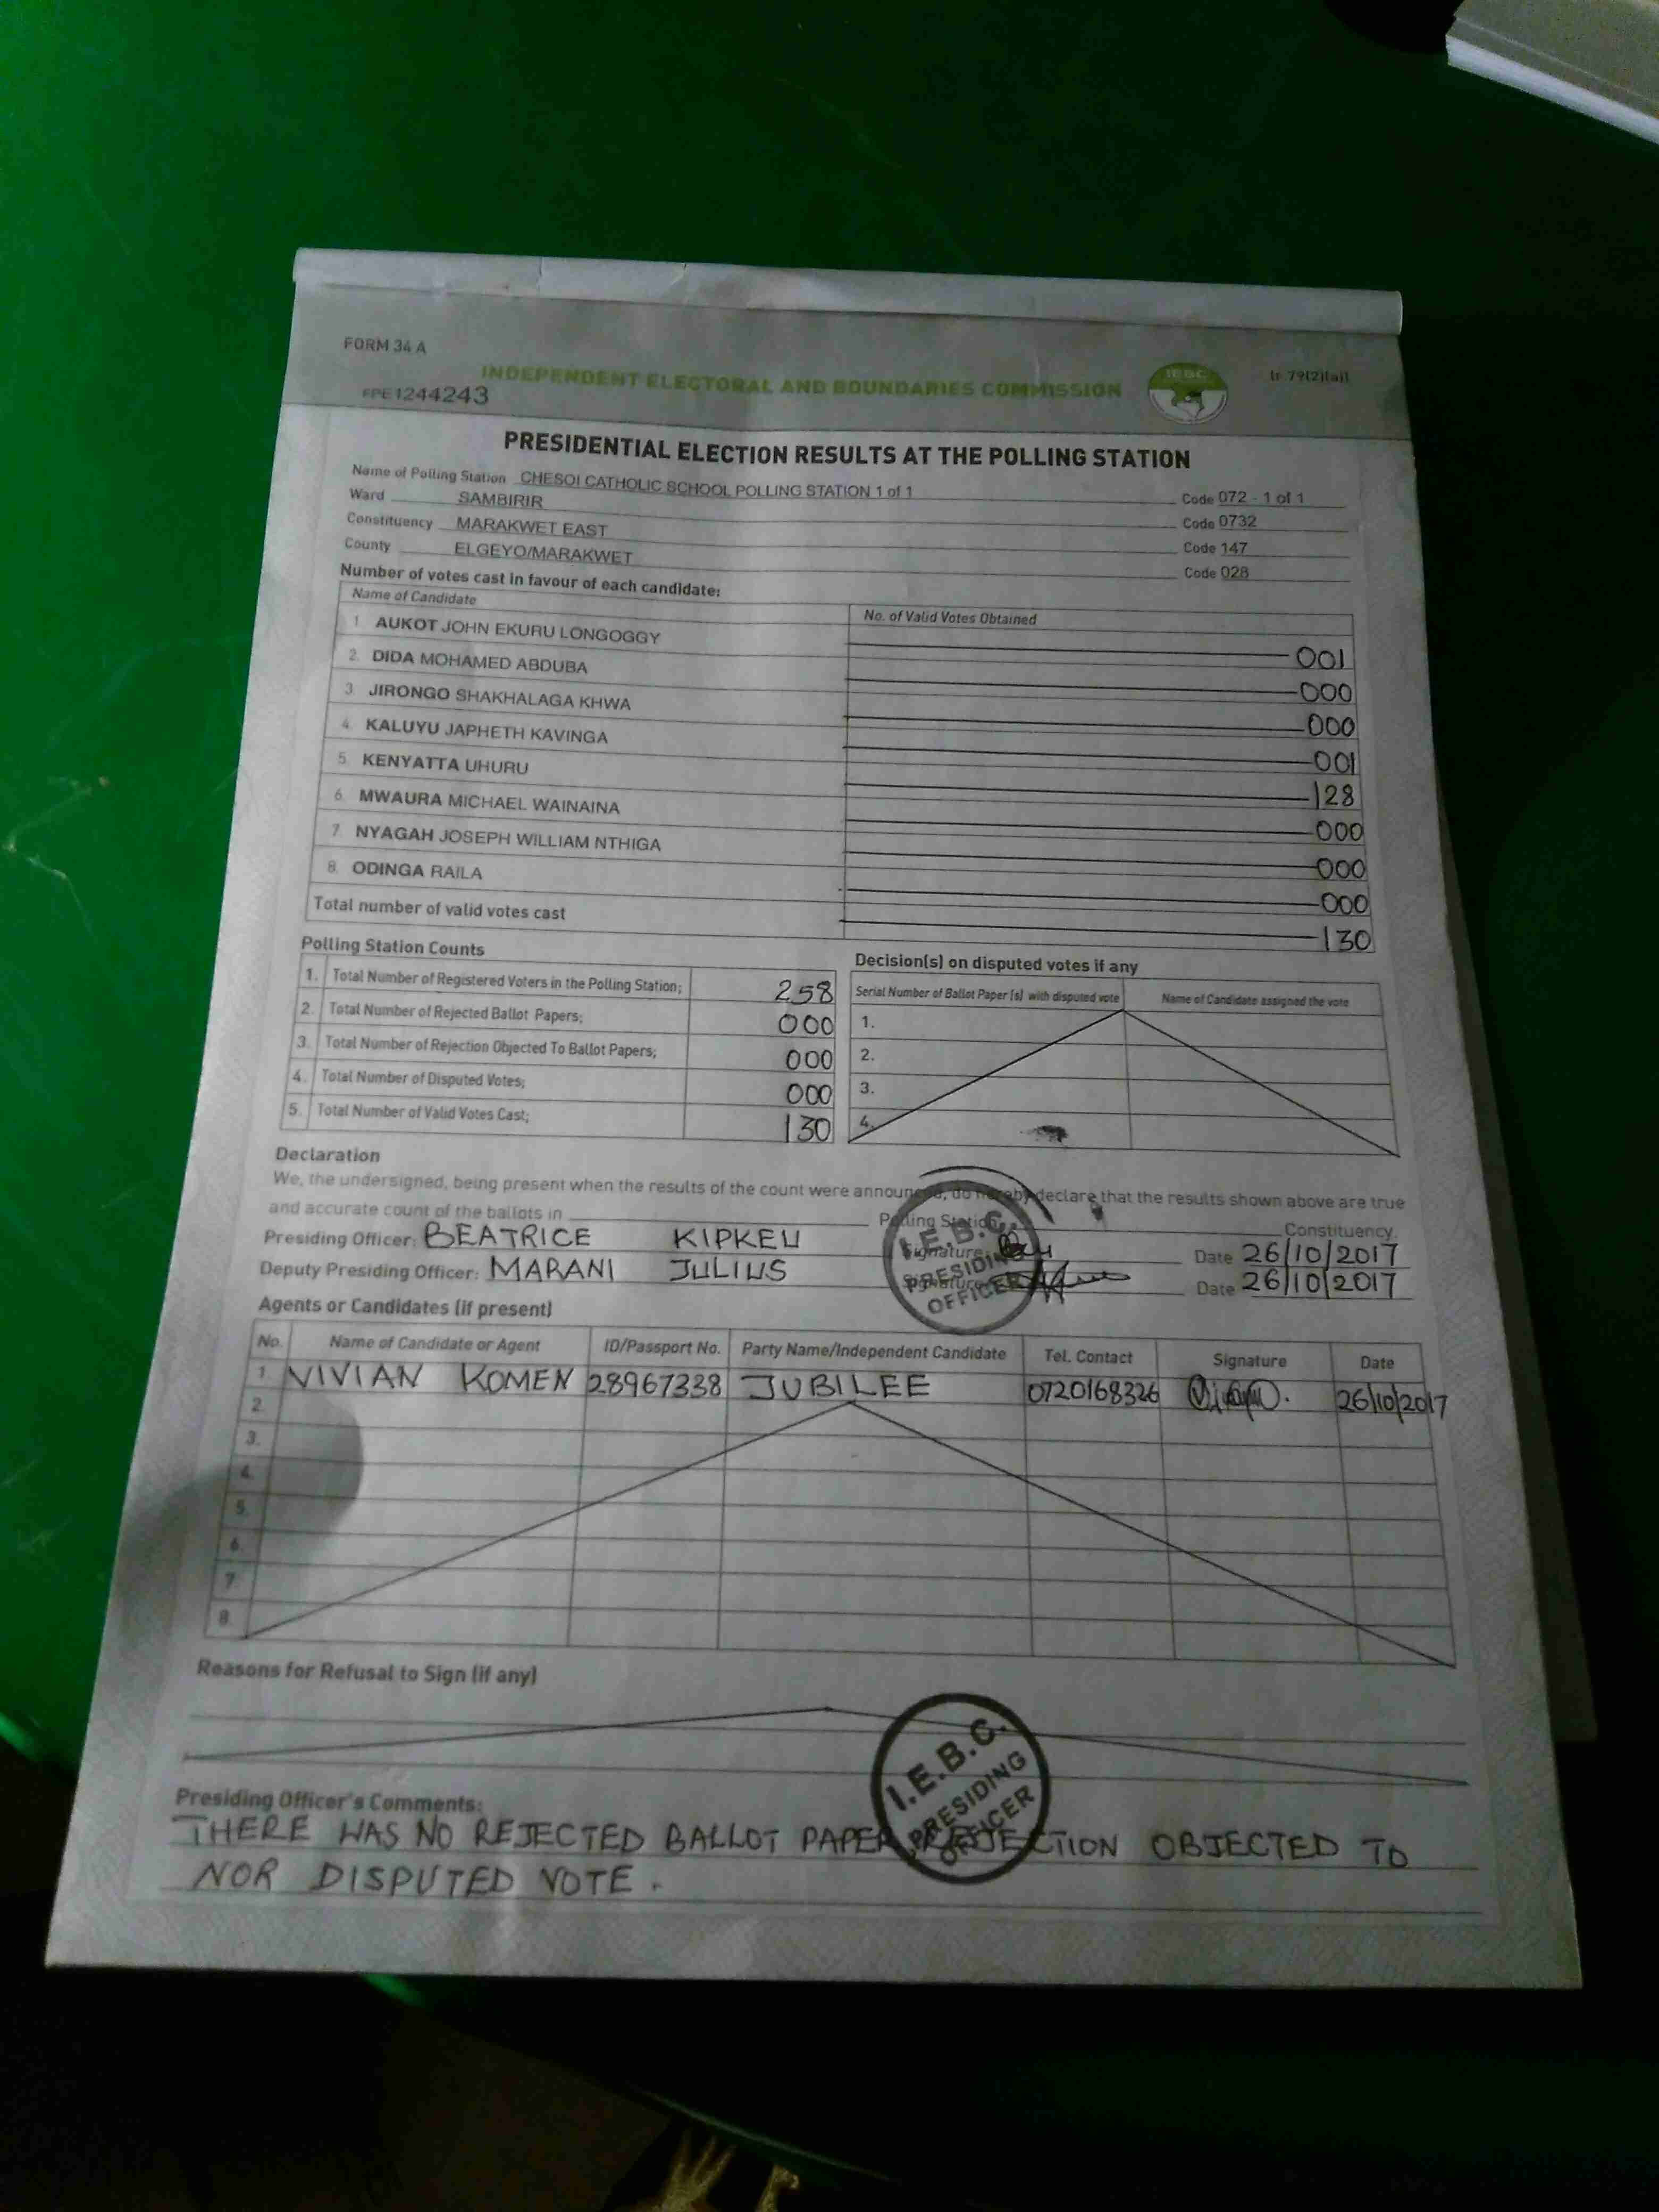 FORM 34 A
INDEPENDENT ELECTORAL AND BOUNDARIES COMMISSION
IEBC
(r.79(2)(a))
FPE1244243
PRESIDENTIAL ELECTION RESULTS AT THE POLLING STATION
Name of Polling Station CHESOI CATHOLIC SCHOOL POLLING STATION 1 of 1 Code 072 - 1 of 1
Ward SAMBIRIR Code 0732
Constituency MARAKWET EAST Code 147
County ELGEYO/MARAKWET Code 028
Number of votes cast in favour of each candidate:
Name of Candidate No. of Valid Votes Obtained
1 AUKOT JOHN EKURU LONGOGGY 001
2. DIDA MOHAMED ABDUBA 000
3 JIRONGO SHAKHALAGA KHWA 000
4. KALUYU JAPHETH KAVINGA 001
5. KENYATTA UHURU 128
6. MWAURA MICHAEL WAINAINA 000
7. NYAGAH JOSEPH WILLIAM NTHIGA 000
8. ODINGA RAILA 000
Total number of valid votes cast 130
Polling Station Counts
1. Total Number of Registered Voters in the Polling Station; 258
2. Total Number of Rejected Ballot Papers; 000
3. Total Number of Rejection Objected To Ballot Papers; 000
4. Total Number of Disputed Votes; 000
5. Total Number of Valid Votes Cast; 130
Decision(s) on disputed votes if any
Serial Number of Ballot Paper (s) with disputed vote Name of Candidate assigned the vote
1.
2.
3.
4.
Declaration
We, the undersigned, being present when the results of the count were announced, do hereby declare that the results shown above are true
and accurate count of the ballots in Polling Station, Constituency.
Presiding Officer: BEATRICE KIPKEU Signature Date 26/10/2017
Deputy Presiding Officer: MARANI JULIUS Signature Date 26/10/2017
I.E.B.C. PRESIDING OFFICER
Agents or Candidates (if present)
No. Name of Candidate or Agent ID/Passport No. Party Name/Independent Candidate Tel. Contact Signature Date
1 VIVIAN KOMEN 28967338 JUBILEE 0720168326 26/10/2017
2.
3.
4.
5.
6.
7
8.
Reasons for Refusal to Sign (if any)
I.E.B.C. PRESIDING OFFICER
Presiding Officer's Comments:
THERE WAS NO REJECTED BALLOT PAPER, REJECTION OBJECTED TO
NOR DISPUTED VOTE.